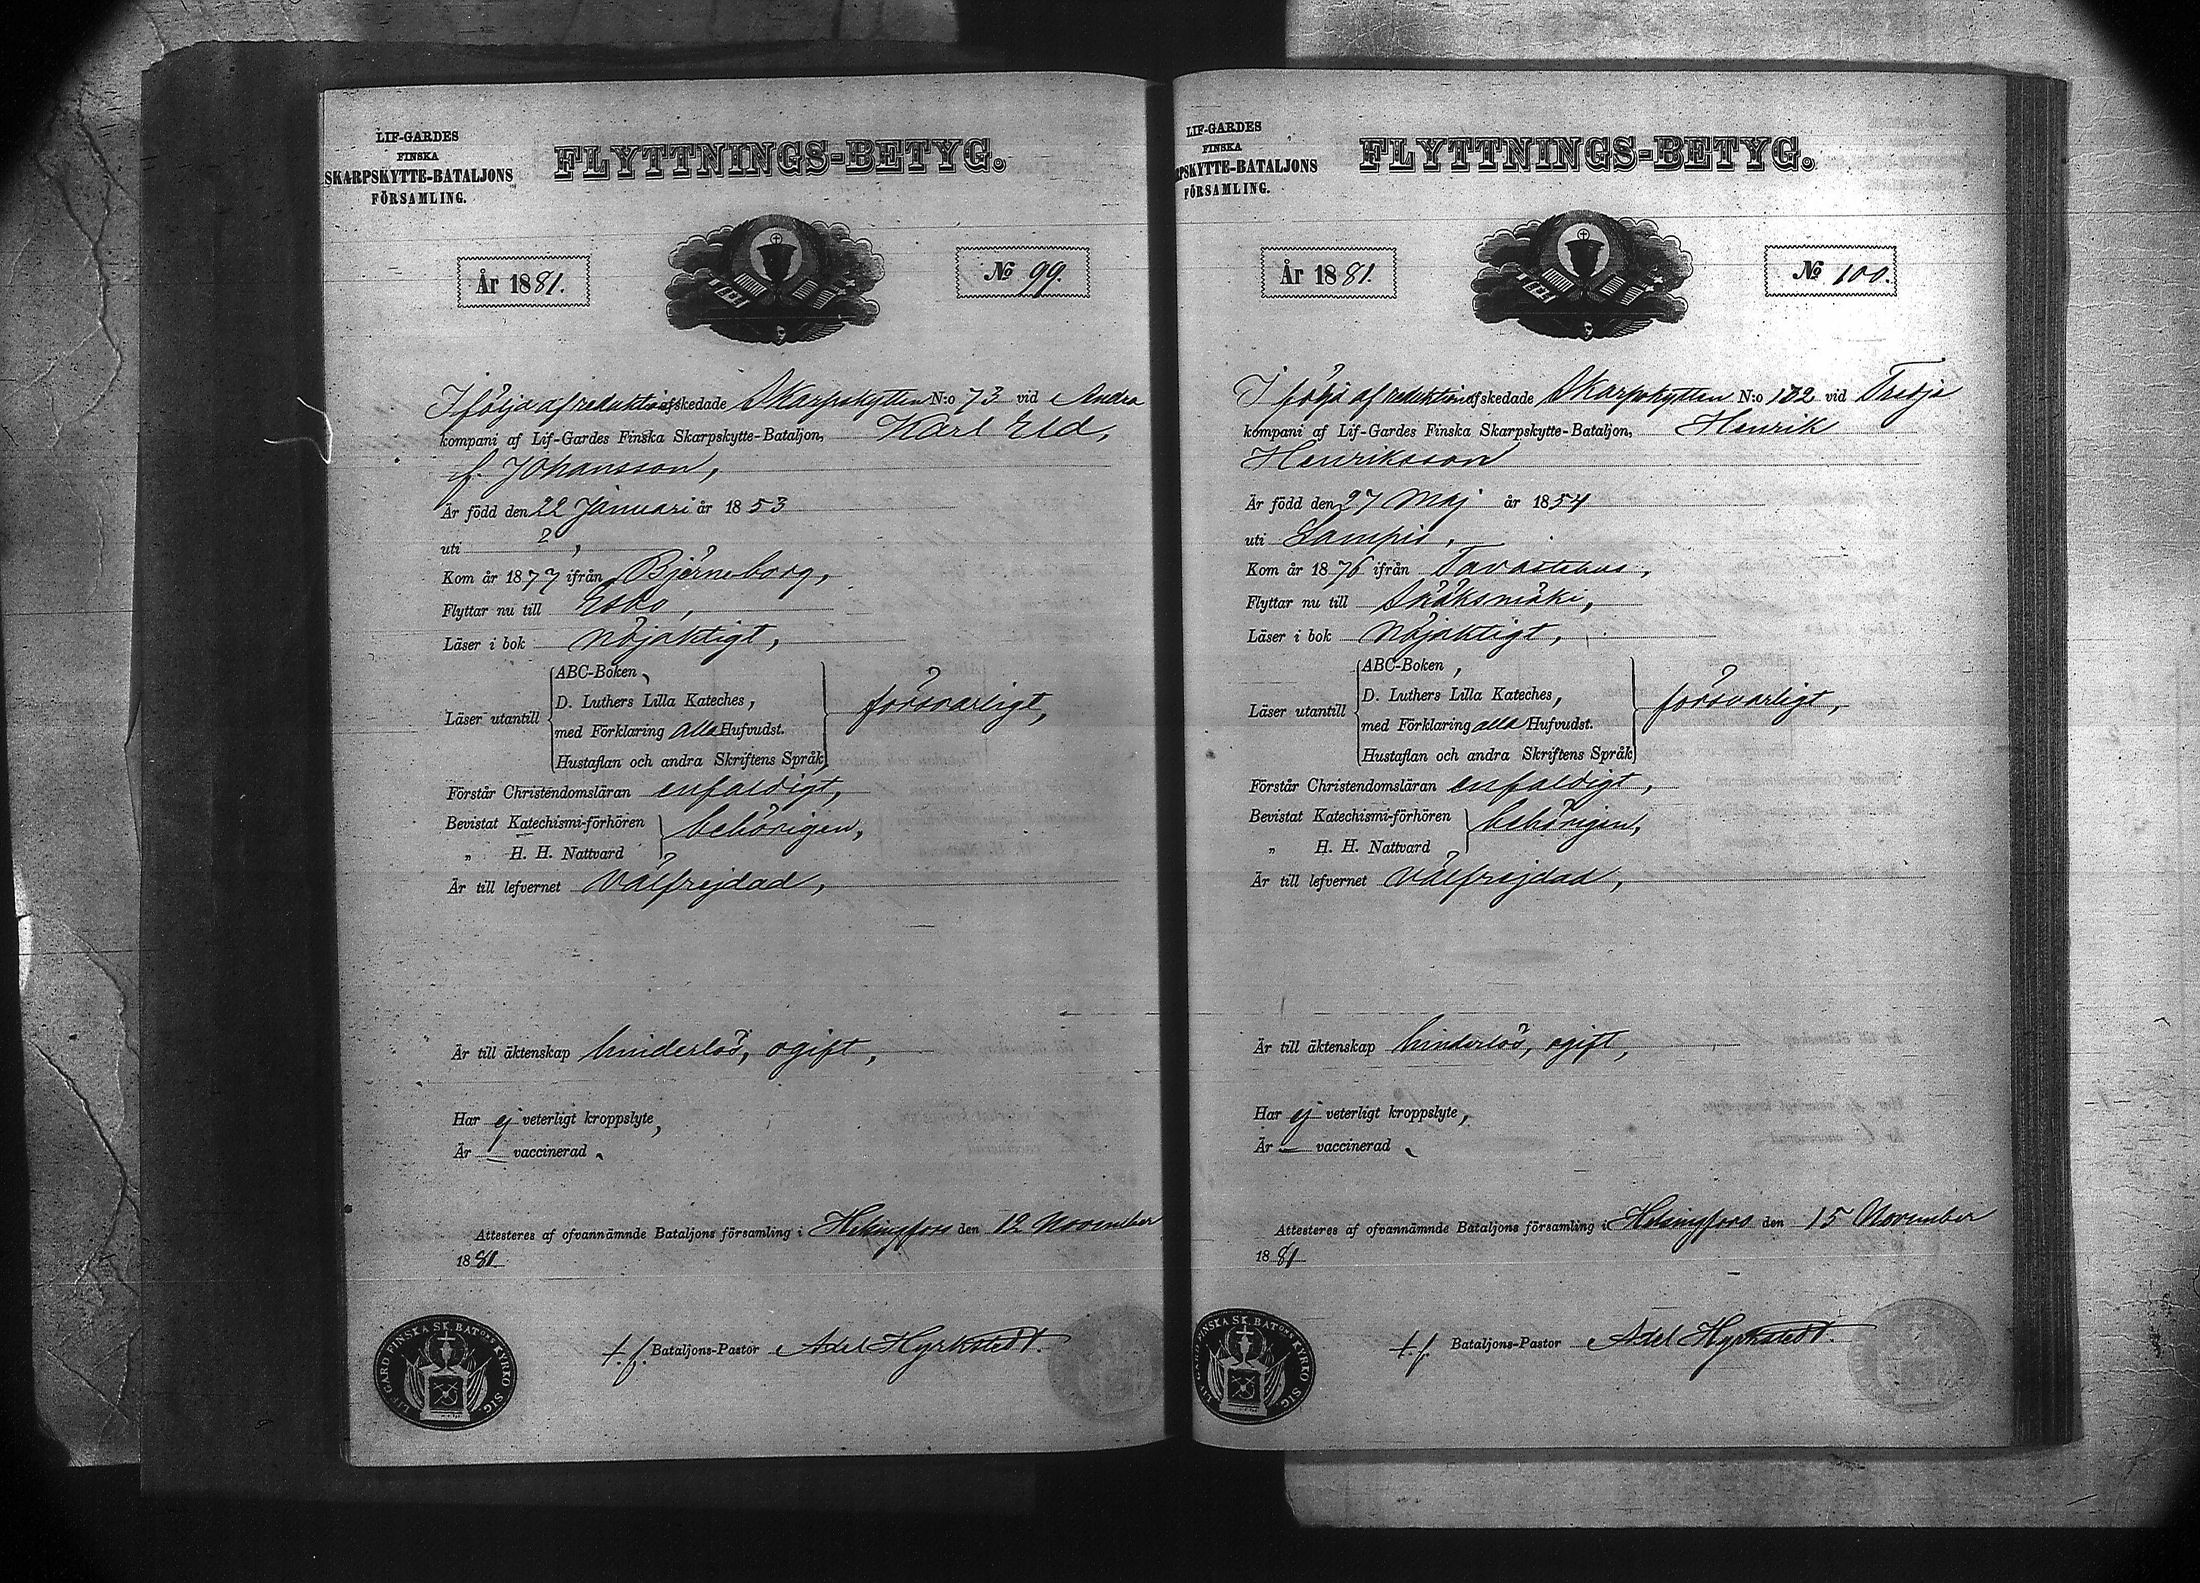 LIF-GARDES
FINSKA
SKARPSKYTTE-BATALJONS
FÖRSAMLING.
FLYTTNINGS-BETYG.
År 1881.
No 99.
I följd af reduktion afskedade Skarpskytten N:o 73 vid Andra
kompani af Lif-Gardes Finska Skarpskytte-Bataljon, Karl Eld,
f. Johansson,
Är född den 22 Januari år 1853
uti ?,
Kom år 1877 ifrån Björneborg,
Flyttar nu till Esbo,
Läser i bok nöjaktigt,
ABC-Boken,
D. Luthers Lilla Kateches,
Läser utantill
med Förklaring alla Hufvudst.
försvarligt,
Hustaflan och andra Skriftens Språk
Förstår Christendomsläran enfaldigt,
Bevistat Katechismi-förhören
behörigen,
„ H. H. Nattvard
Är till lefvernet välfrejdad,
Är till äktenskap hinderlös, ogift,
Har ej veterligt kroppslyte,
Är — vaccinerad.
Attesteras af ofvannämnde Bataljons församling i Helsingfors den 12 November
1881
t.f. Bataljons-Pastor Adel Hyrkstedt.
LIF GARD FINSKA SK. BATONS KYRKO SIG.
LIF-GARDES
FINSKA
RPSKYTTE-BATALJONS
FÖRSAMLING.
FLYTTNINGS-BETYG.
År 1881.
No 100.
I följd af reduktion afskedade Skarpskytten N:o 102 vid Tredje
kompani af Lif-Gardes Finska Skarpskytte-Bataljon, Henrik
Henriksson
Är född den 27 Maj år 1854
uti Lampis,
Kom år 1876 ifrån Tavastehus,
Flyttar nu till Sääksmäki,
Läser i bok nöjaktigt,
ABC-Boken,
D. Luthers Lilla Kateches,
Läser utantill
med Förklaring alla Hufvudst.
försvarligt,
Hustaflan och andra Skriftens Språk
Förstår Christendomsläran enfaldigt,
Bevistat Katechismi-förhören
behörigen,
„ H. H. Nattvard
Är till lefvernet välfrejdad,
Är till äktenskap hinderlös, ogift,
Har ej veterligt kroppslyte,
Är — vaccinerad.
Attesteras af ofvannämnde Bataljons församling i Helsingfors den 15 November
1881
t.f. Bataljons-Pastor Adel Hyrkstedt.
LIF GARD FINSKA SK. BATONS KYRKO SIG.